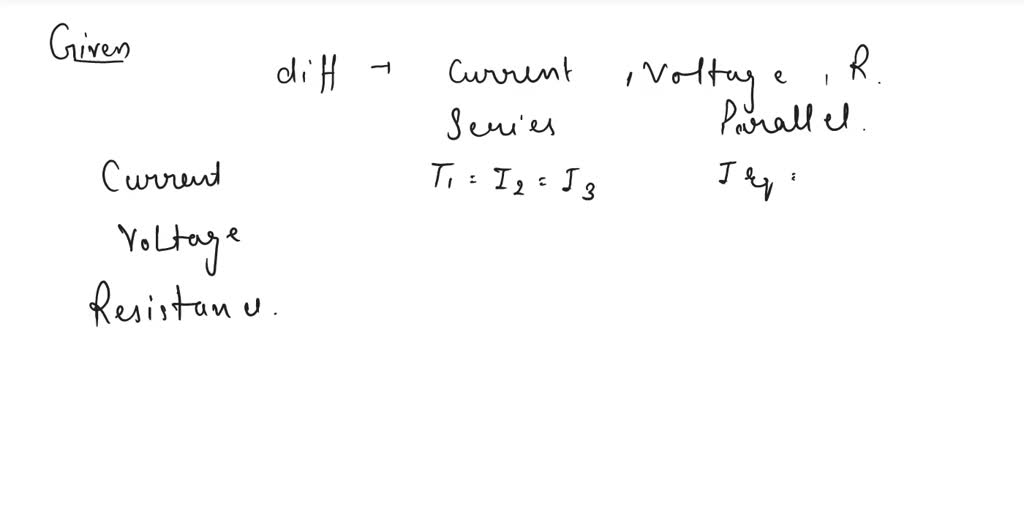 Given
diff → Current , Voltage , R.
Series Parallel.
Current I1 = I2 = I3 Ieq =
Voltage
Resistance.